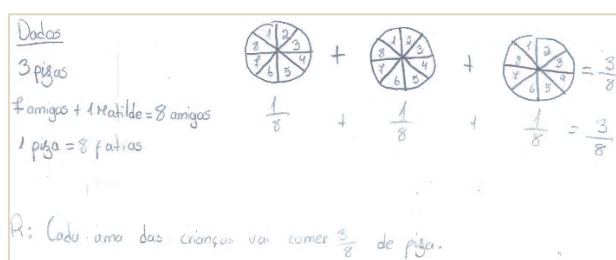 Dados
3 pizas
7 amigos + 1 Matilde = 8 amigos
1 piza = 8 fatias
1 2 3 4 5 6 7 8 + 1 2 3 4 5 6 7 8 + 1 2 3 4 5 6 7 8 = 3/8
1/8 + 1/8 + 1/8 = 3/8
R: Cada uma das crianças vai comer 3/8 de piza.